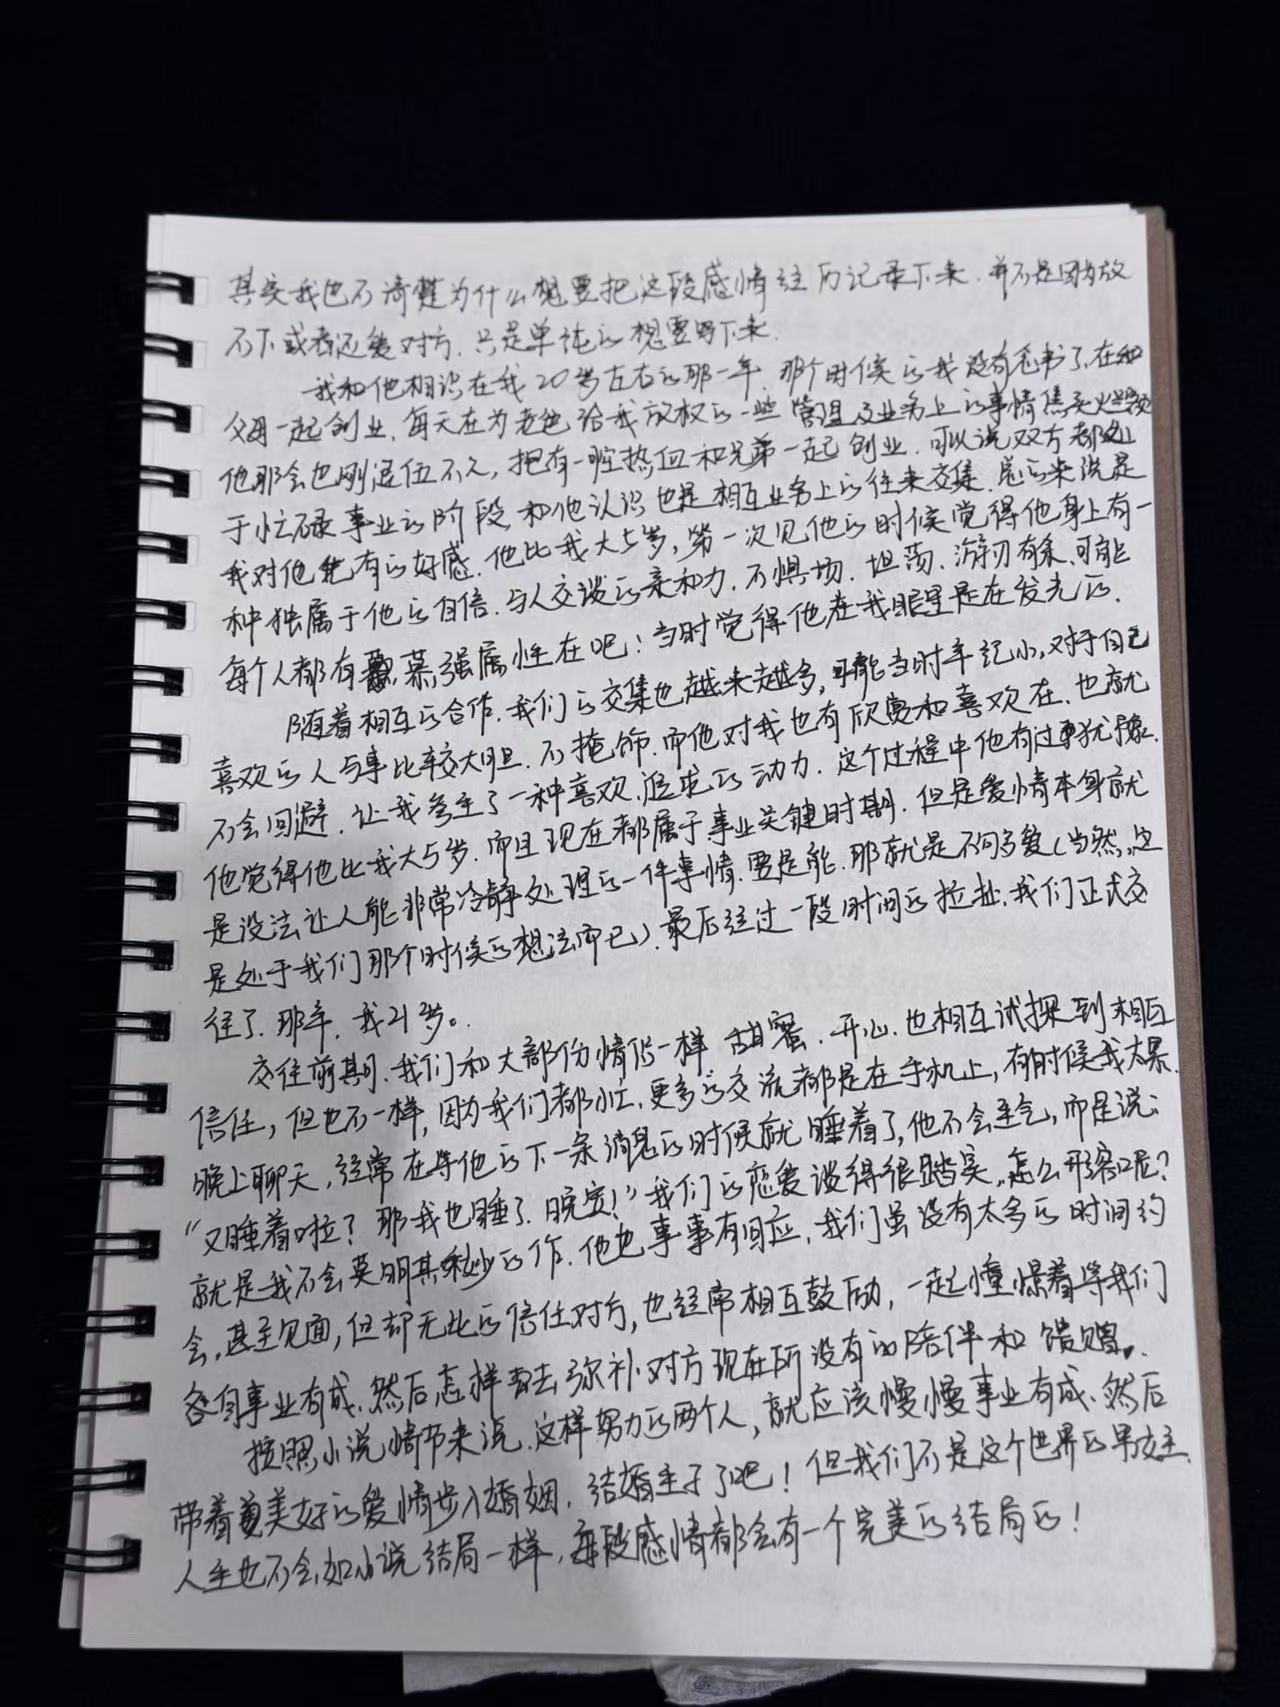 其实我也不清楚为什么想要把这段感情经历记录下来.并不是因为放
不下或者还爱对方.只是单纯的想要写下来.
我和他相识在我20岁左右的那一年.那个时候的我没有念书了.在和
父母一起创业.每天在为老爸给我放权的一些管理及业务上的事情焦头烂额
他那会也刚退伍不久,抱有一腔热血和兄弟一起创业.可以说双方都处
于忙碌事业的阶段.和他认识也是相互业务上的往来交集.总的来说是
我对他先有的好感.他比我大5岁,第一次见他的时候觉得他身上有一
种独属于他的自信.与人交谈的亲和力.不惧场.坦荡.游刃有余.可能
每个人都有慕强属性在吧!当时觉得他在我眼里是在发光的.
随着相互的合作.我们的交集也越来越多,可能当时年记小,对于自己
喜欢的人与事比较大胆.不掩饰.而他对我也有欣赏和喜欢在.也就
不会回避.让我产生了一种喜欢.追求的动力.这个过程中他有过犹豫.
他觉得他比我大5岁.而且现在都属于事业关键时期.但是爱情本身就
是没法让人能非常冷静处理的一件事情.要是能.那就是不够爱(当然,这
是处于我们那个时候的想法而已).最后经过一段时间的拉扯.我们正式交
往了.那年.我21岁。
交往前期.我们和大部份情侣一样甜蜜.开心.也相互试探到相互
信任,但也不一样,因为我们都忙.更多的交流都是在手机上,有时候我太累.
晚上聊天,经常在等他的下一条消息的时候就睡着了,他不会生气,而是说:
“又睡着啦?那我也睡了.晚安!”我们的恋爱谈得很踏实.怎么形容呢?
就是我不会莫明其秒的作.他也事事有回应,我们虽没有太多的时间约
会,甚至见面,但却无比的信任对方,也经常相互鼓励,一起憧憬着等我们
各自事业有成.然后怎样去弥补对方现在所没有的陪伴和馈赠.
按照小说情节来说.这样努力的两个人,就应该慢慢事业有成.然后
带着美好的爱情步入婚姻.结婚生子了吧!但我们不是这个世界的男女主.
人生也不会如小说结局一样,每段感情都会有一个完美的结局的!